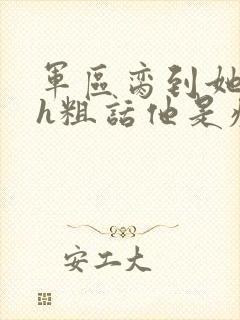 軍區臠到她
h粗話他是
安工大